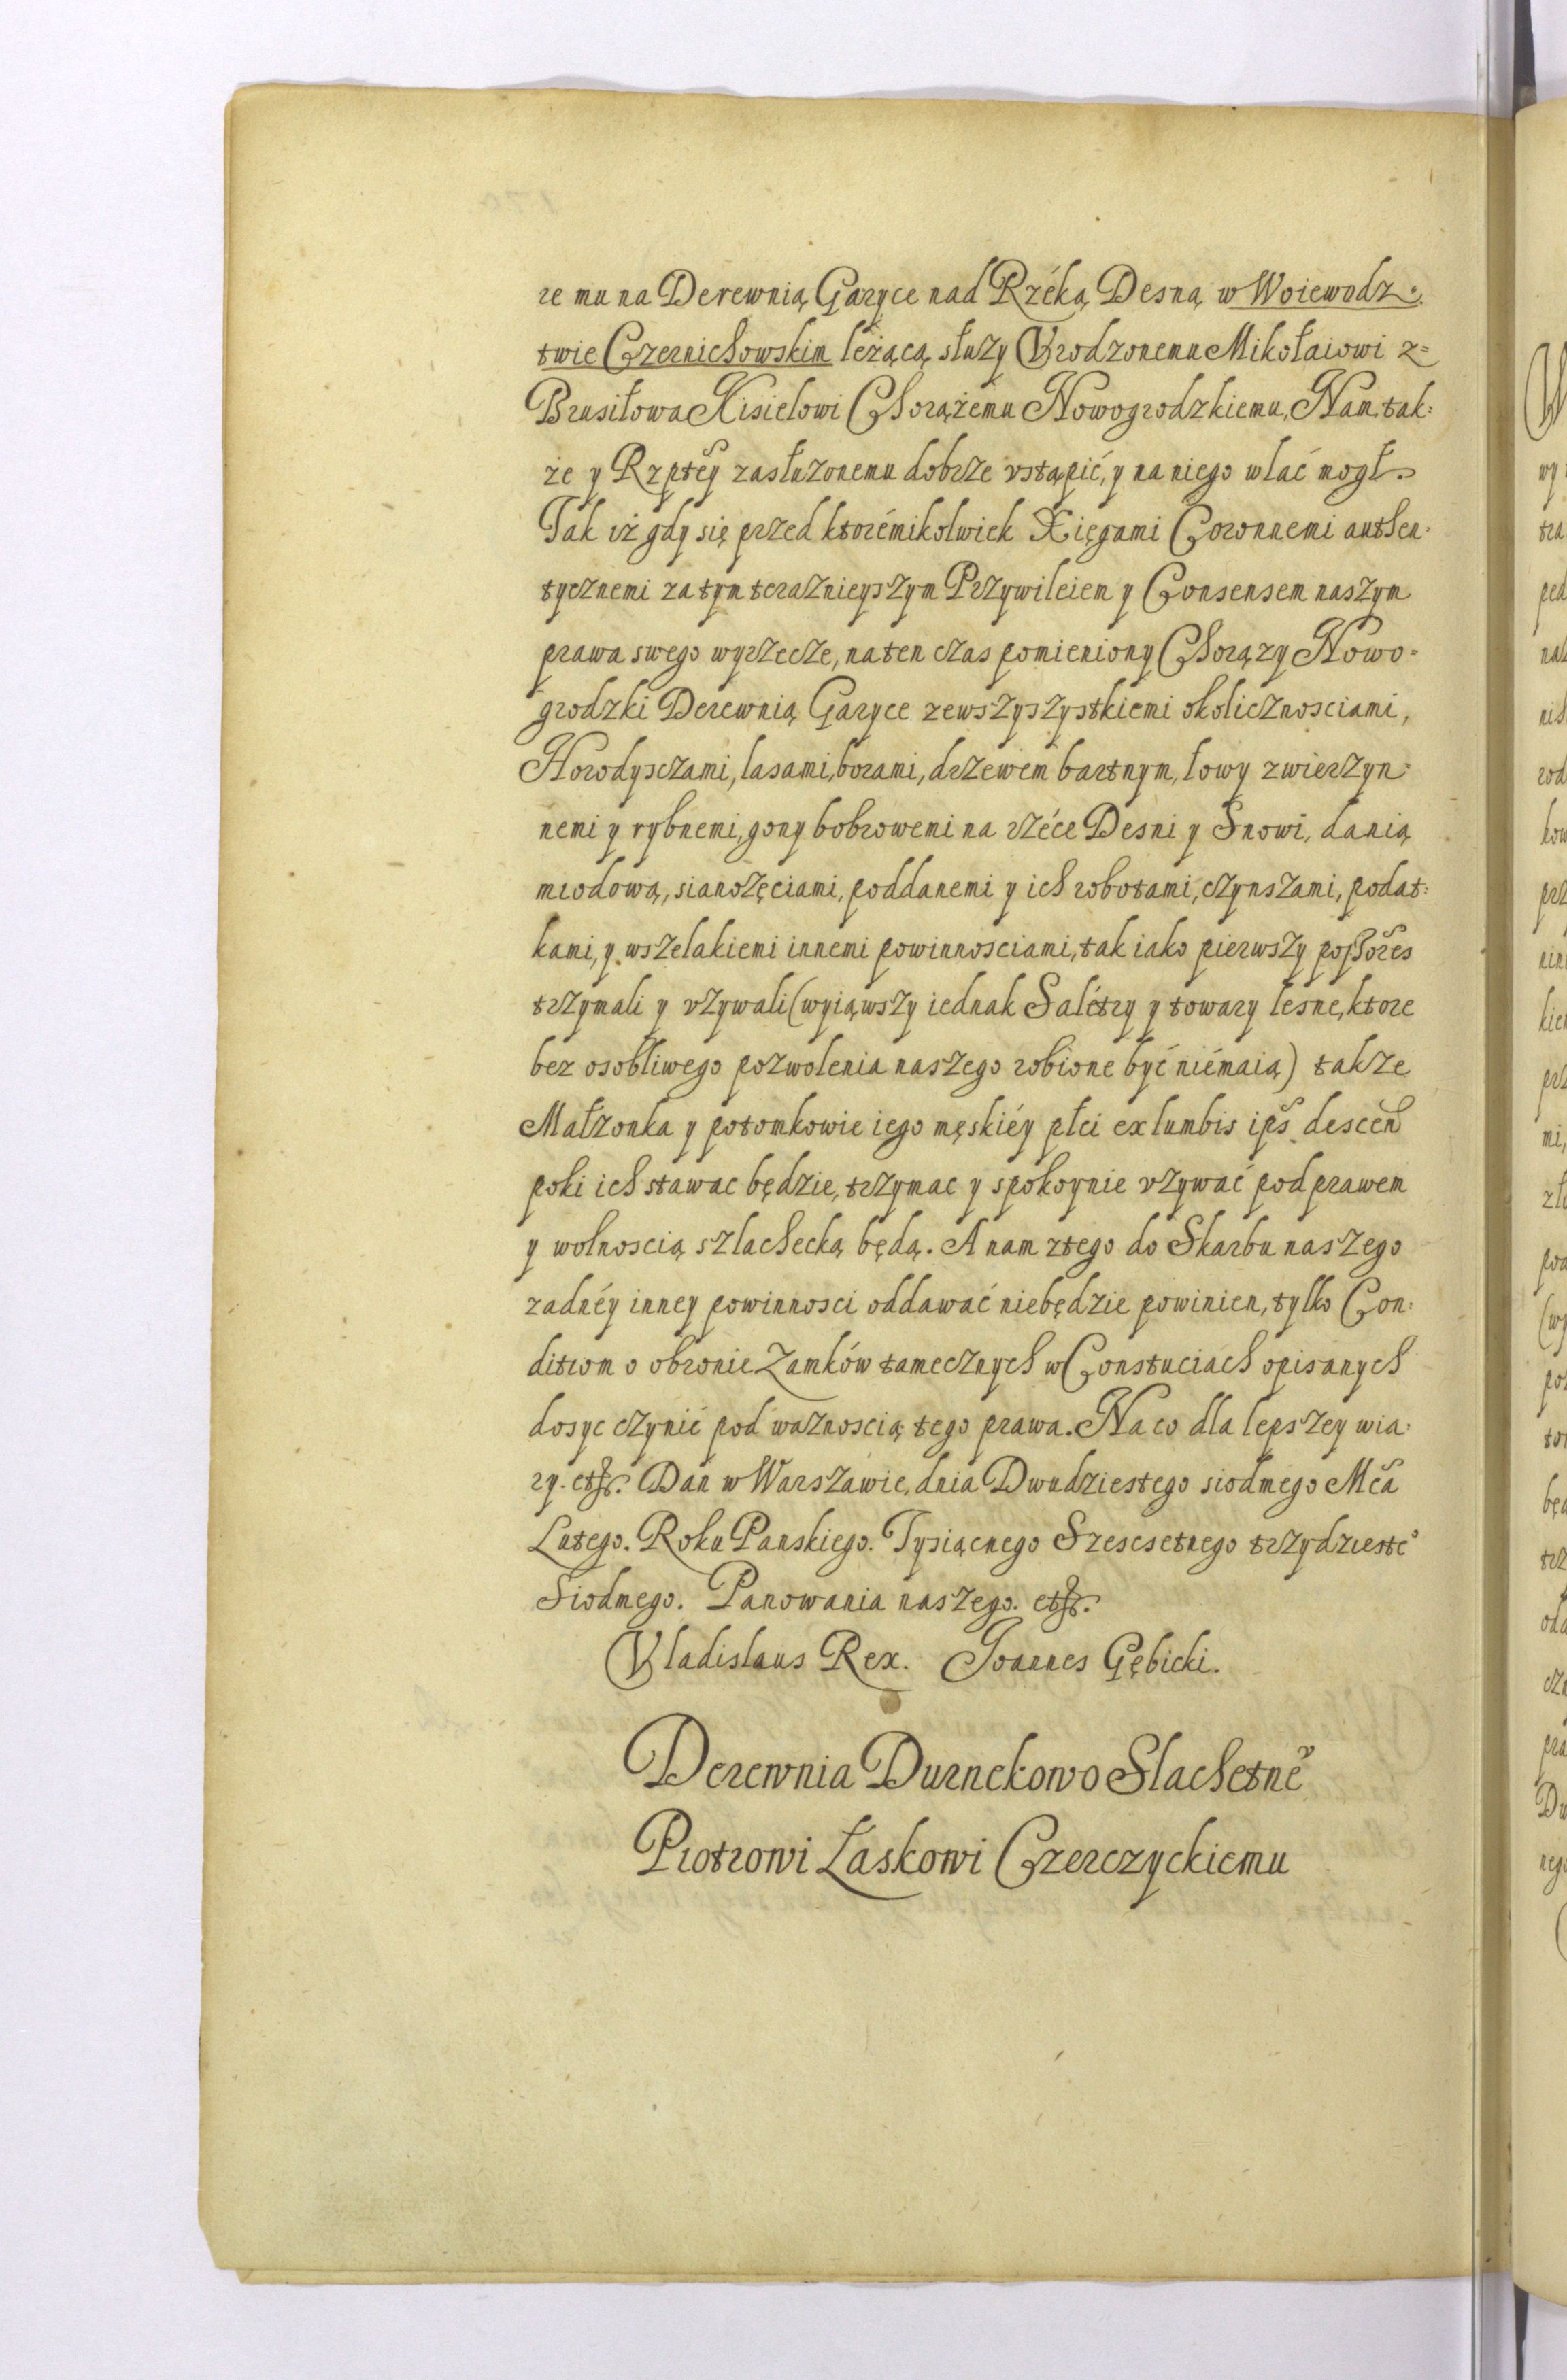 re mu na Derewnią Garyce nad Rzéką Desną w Woiewodz:
twie Czernichowskim leżącą służy Vrodzonemu Mikołaiowi z=
Brusiłowa Kisielowi Chorążemu Nowogrodzkiemu, Nam, tak:
że y Rzptey zasłużonemu dobrze vstąpić, y na niego wlać mogł.
Tak iż gdy się przed ktorémikolwiek Xięgami Coronnemi authen:
tycznemi za tym teraznieyszym Przywileiem y Consensem naszym
prawa swego wyrzecze, na ten czas pomieniony Chorązy Nowo=
grodzki Derewnią Garyce zewszyszystkiemi okolicznosciami,
Horodysczami, lasami, borami, drzewem bartnym, łowy zwierzyn:
nemi y rybnemi, gony bobrowemi na rzéce Desni y Snowi, danią
miodową, sianożęciami, poddanemi y ich robotami, czynszami, podat:
kami, y wszelakiemi innemi powinnosciami, tak iako pierwszy possores
trzymali y vżywali (wyiąwszy iednak Salétry y towary lesne, ktore
bez osobliwego pozwolenia naszego robione być niémaią) takze
Małżonka y potomkowie iego męskiéy płci ex lumbis ips descen
poki ich stawac będzie, trzymac y spokoynie vżywać pod prawem
y wolnoscią szlachecką będą. A nam ztego do Skarbu naszego
zadnéy inney powinnosci oddawać niebędzie powinien, tylko Con:
ditiom o obronie Zamków tamecznych w Constuciach opisanych
dosyc czynić pod waznoscią tego prawa. Na co dla lepszey wia:
ry. etc. Dan w Warszawie, dnia Dwudziestego siodmego Mca
Lutego. Roku Panskiego. Tysiącnego Szescsetnego trzydzieste°
Siodmego. Panowania naszego. etc.
Vladislaus Rex. Joannes Gębicki.
Derewnia Durnekowo Slachetne
Piotrowi Łaskowi Czerczyckiemu